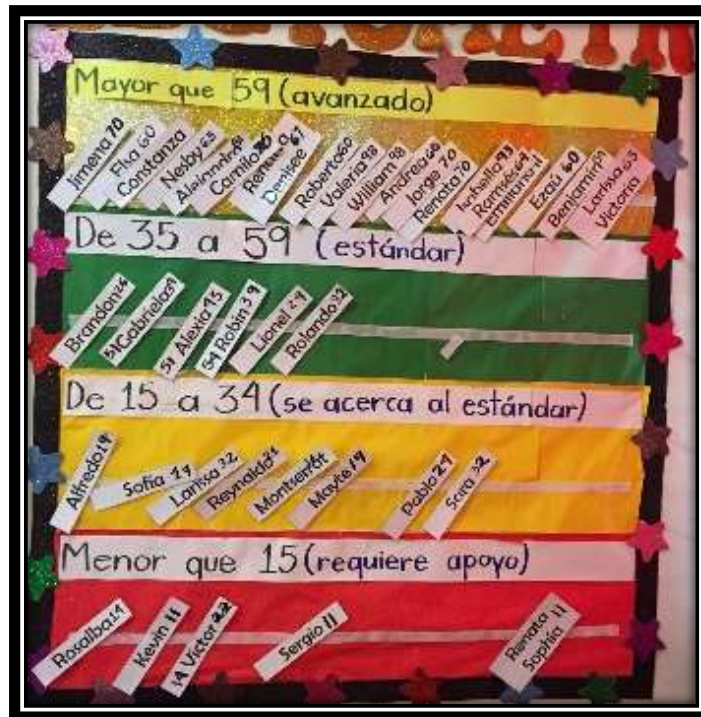 Mayor que 59 (avanzado)
Jimena 70
60
Constanza
Nesby 63
Camila
Denisee
Roberto 60
Valeria 98
William 98
Andrea 60
Jorge 70
Renata 70
Ezaú 60
Benjamín
Larissa 63
Victoria
De 35 a 59 (estándar)
Brandon
Gabriela
Alexia 45
Robin 39
Lionel
Rolando 32
De 15 a 34 (se acerca al estándar)
Alfredo 19
Sofía
Larissa 32
Reynaldo
Montserratt
Mayte 19
Pablo 29
Sara 32
Menor que 15 (requiere apoyo)
Rosalba 14
Kevin 11
14 Victor 22
Sergio 11
Renata 11
Sophia